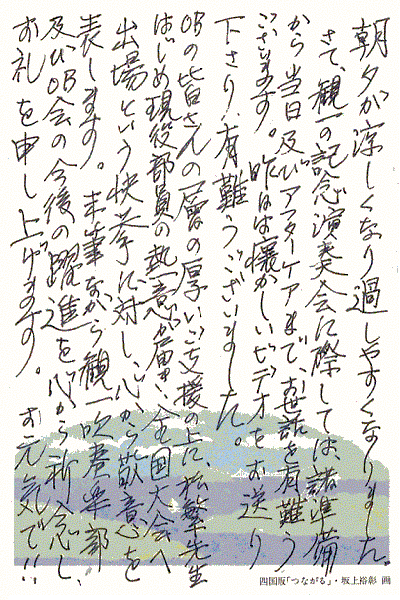 朝夕が涼しくなり過しやすくなりました。
さて、観一の記念演奏会に際しては、諸準備
から当日及びアフターケアまで、お世話を有難う
ございます。昨日は懐かしいビデオをお送り
下さり、有難うございました。
OBの皆さんの一層の厚いご支援の上に、松繁先生
はじめ現役部員の熱意が届き、全国大会へ
出場という快挙に対し、心から敬意を
表します。末筆ながら観一吹奏楽部
及びOB会の今後の躍進を心から祈念し、
お礼を申し上げます。お元気で!!
四国版「つながる」・坂上裕彰 画